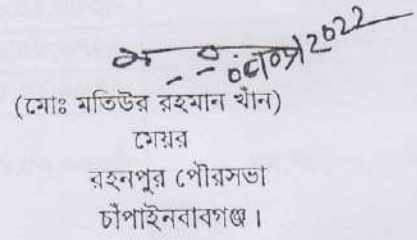 (মোঃ মতিউর রহমান খাঁন)
মেয়র
রহনপুর পৌরসভা
চাঁপাইনবাবগঞ্জ।